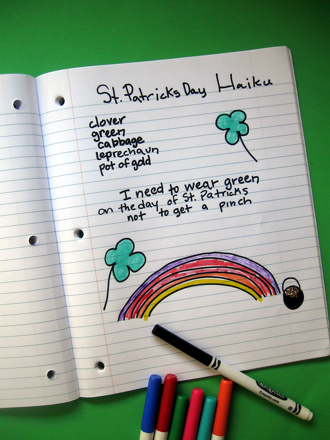 St. Patricks Day Haiku
clover
green
cabbage
leprechaun
pot of gold
I need to wear green
on the day of St. Patricks
not to get a pinch
Crayola